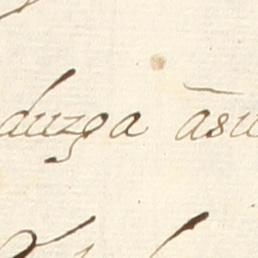 duzga āsu